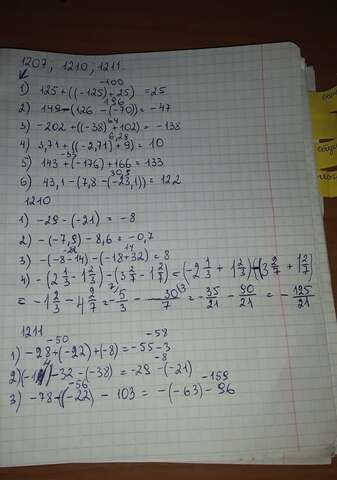 1207, 1210, 1211.
-100
1) 125 + ((-125) + 25) = 25
196
2) 149 - (126 - (-70)) = -47
64
3) -202 + ((-38) + 102) = -138
6,29
4) 3,71 + ((-2,71) + 9) = 10
-33
5) 143 + (-176) + 166 = 133
30,9
6) 43,1 - (7,8 - (-23,1)) = 12,2
1210
1) -29 - (-21) = -8
2) -(-7,9) - 8,6 = -0,7
-22 14
3) -(-8 - 14) - (-18 + 32) = 8
4) -(2 1/3 - 1 2/3) - (3 2/7 - 1 2/7) = (-2 1/3 + 1 2/3) - (3 2/7 + 1 2/7)
= -1 2/3 - 4 2/7 = -5/3 - 30/7 = -35/21 - 90/21 = -125/21
1211
-50 -58
1) -28 + (-22) + (-8) = -55 - 3
-8
-32 - (-38) = -29 - (-21)
-56 -159
3) -78 - (-22) - 103 = -(-63) - 96